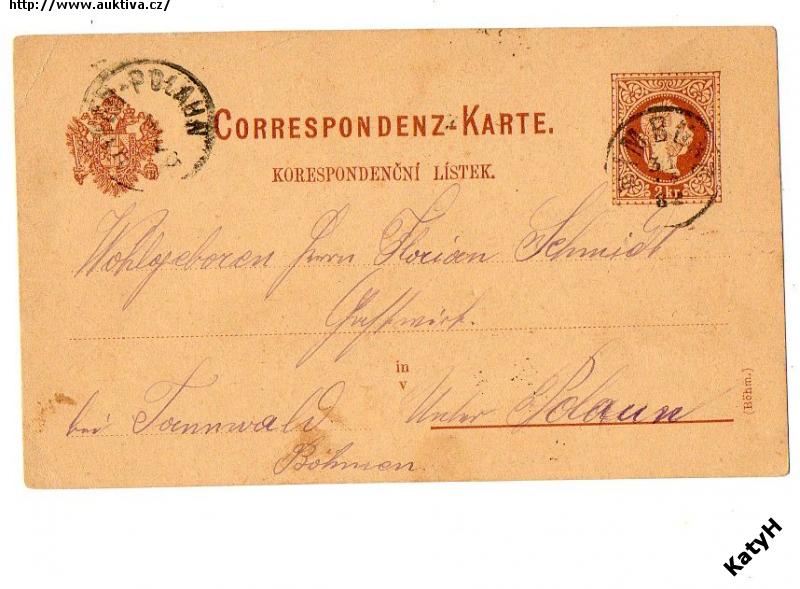 http://www.auktiva.cz/
POLAUN
CORRESPONDENZ-KARTE.
KORESPONDENČNÍ LÍSTEK.
2 kr
Wohlgeboren Herrn Florian Schmidt
Gastwirt.
in
v
bei Tannwald Unter Polaun
Böhmen.
(Böhm.)
KatyH